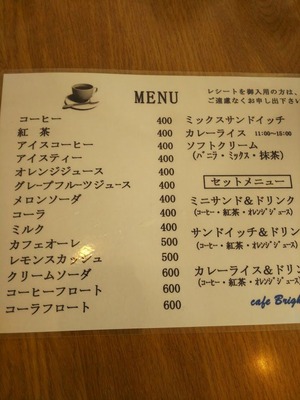 レシートを御入用の方は、
ご遠慮なくお申し出下さい
MENU
コーヒー 400
紅茶 400
アイスコーヒー 400
アイスティー 400
オレンジジュース 400
グレープフルーツジュース 400
メロンソーダ 400
コーラ 400
ミルク 400
カフェオーレ 500
レモンスカッシュ 500
クリームソーダ 600
コーヒーフロート 600
コーラフロート 600
ミックスサンドイッチ
カレーライス 11:00~15:00
ソフトクリーム
(バニラ・ミックス・抹茶)
セットメニュー
ミニサンド&ドリンク
(コーヒー・紅茶・オレンジジュース)
サンドイッチ&ドリン
(コーヒー・紅茶・オレンジジュース)
カレーライス&ドリン
(コーヒー・紅茶・オレンジジュース)
cafe Brigh